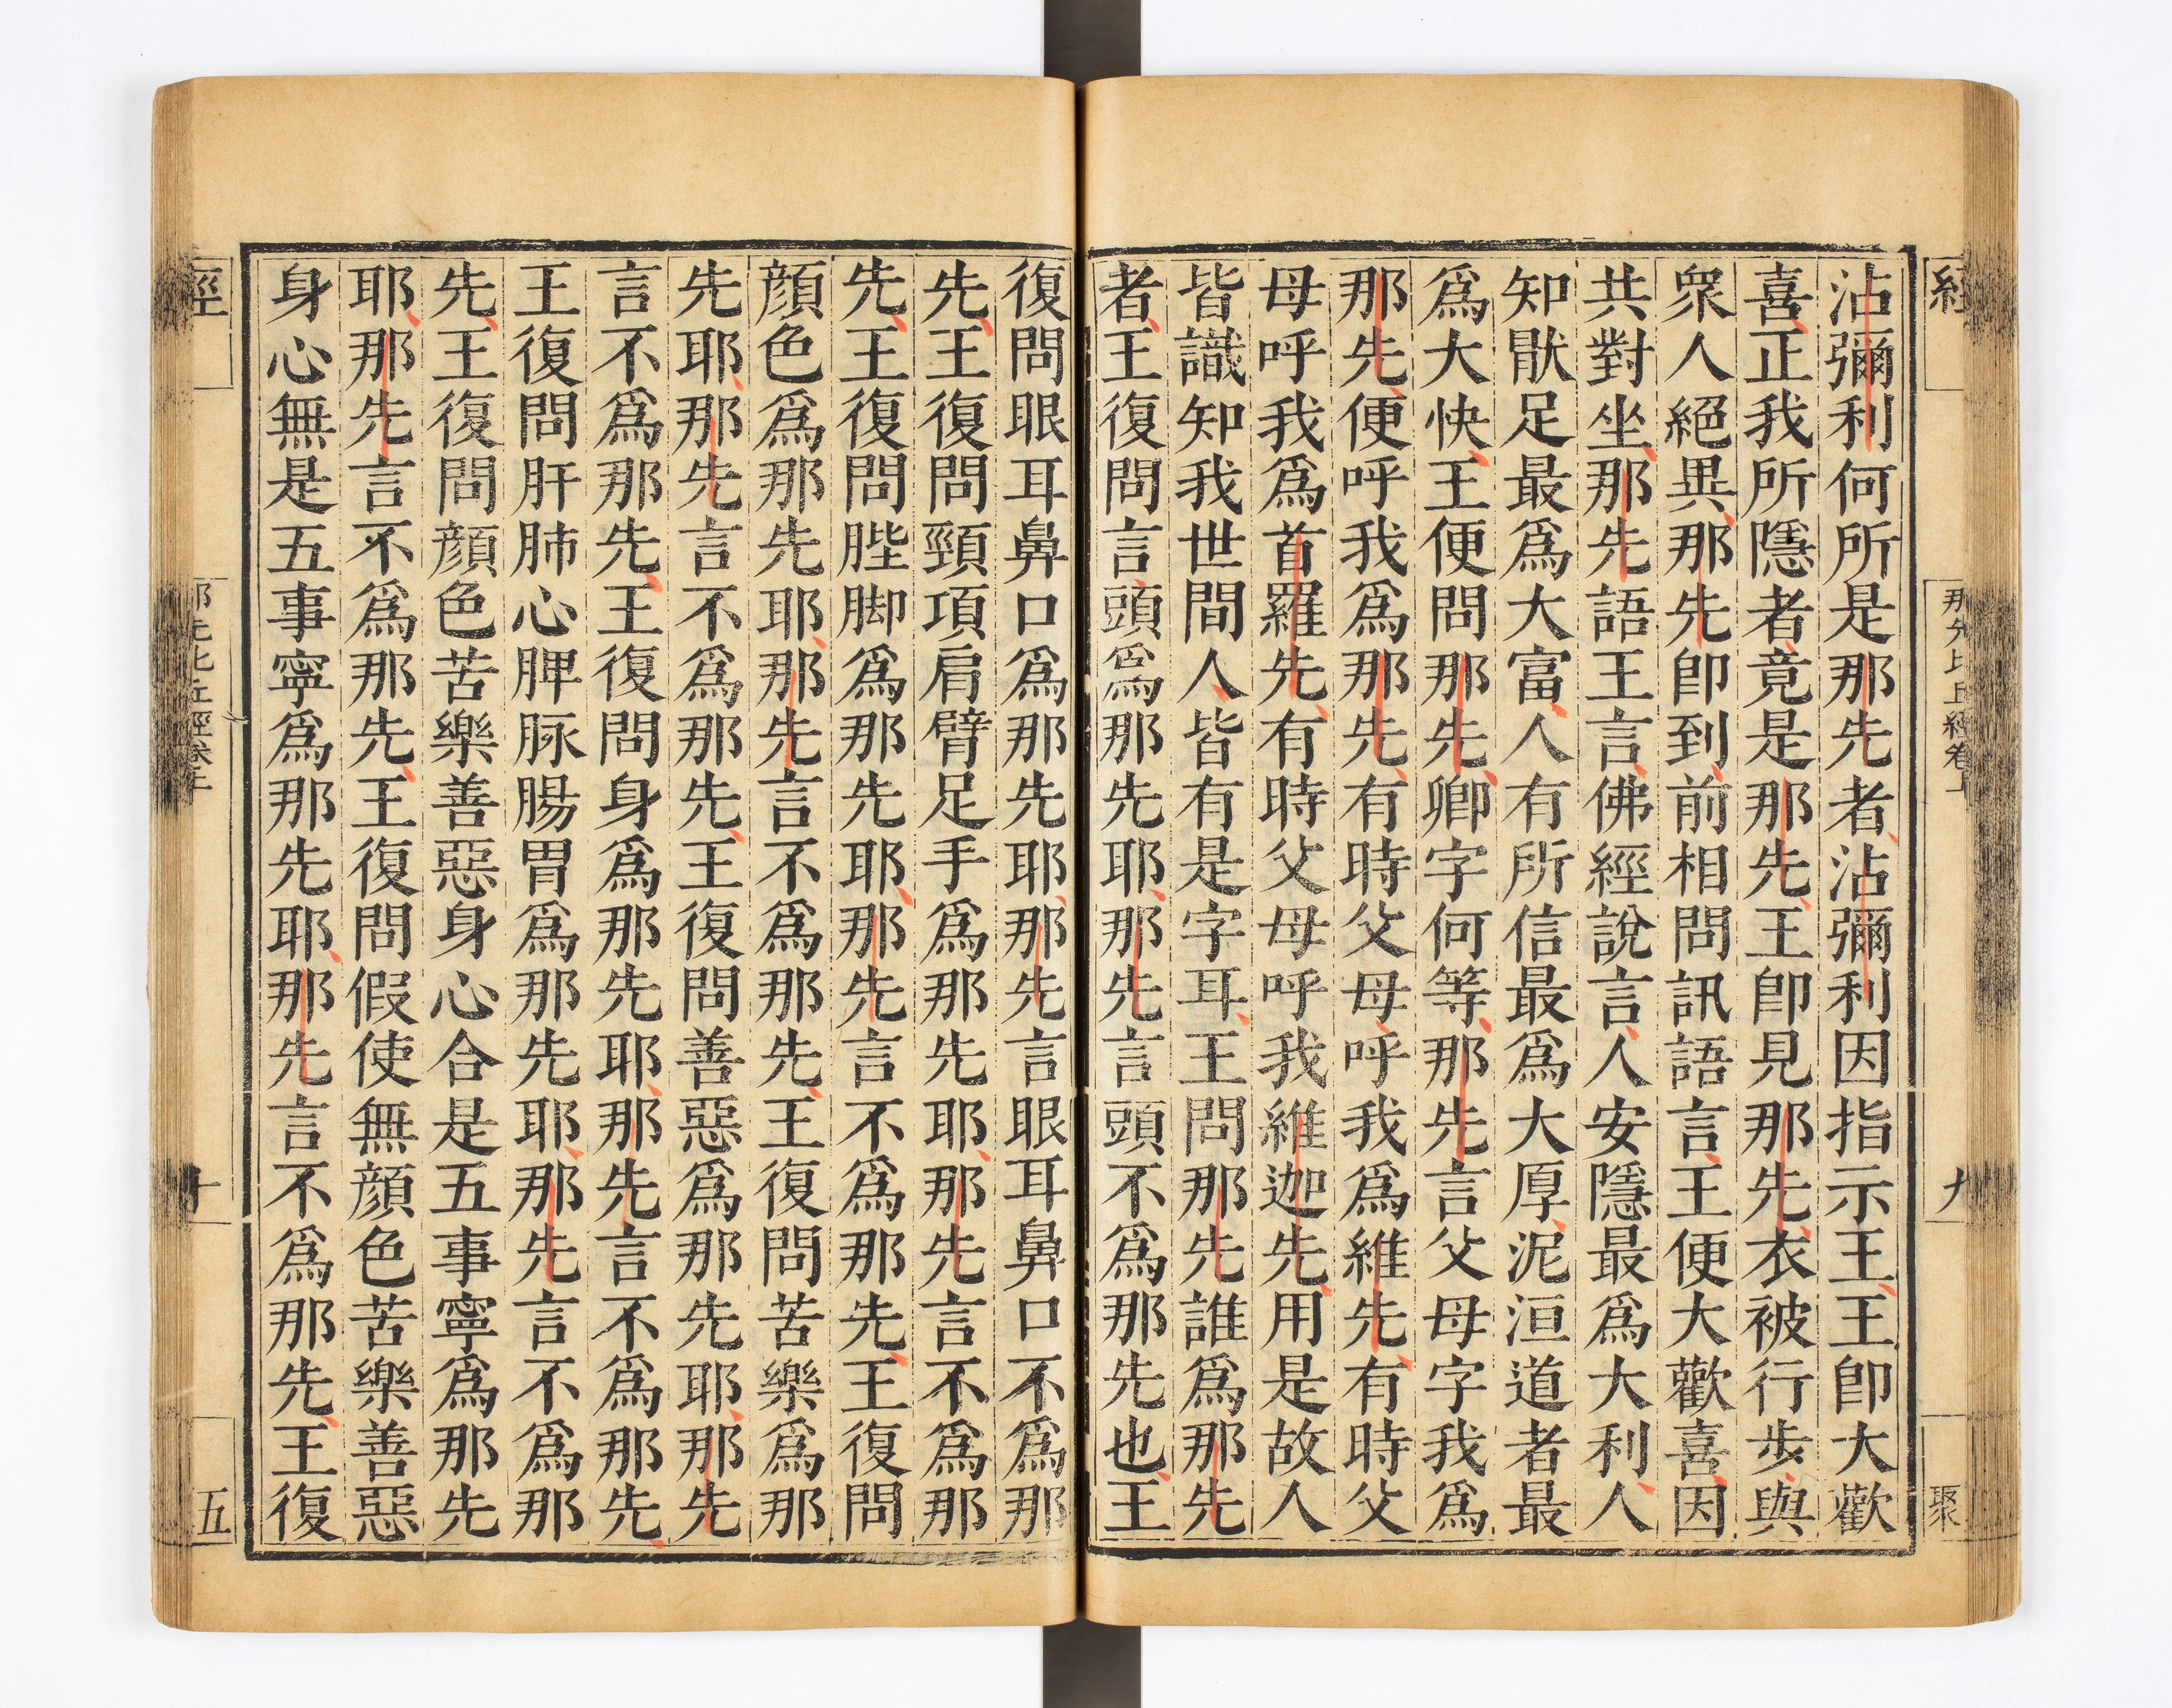 經
那先比丘經卷上
九
聚
沾彌利何所是那先者沾彌利因指示王王卽大歡
喜正我所隱者竟是那先王卽見那先衣被行步與
衆人絕異那先卽到前相問訊語言王便大歡喜因
共對坐那先語王言佛經說言人安隱最爲大利人
知猒足最爲大富人有所信最爲大厚泥洹道者最
爲大快王便問那先卿字何等那先言父母字我爲
那先便呼我爲那先有時父母呼我爲維先有時父
母呼我爲首羅先有時父母呼我維迦先用是故人
皆識知我世間人皆有是字耳王問那先誰爲那先
者王復問言頭爲那先耶那先言頭不爲那先也王
復問眼耳鼻口爲那先耶那先言眼耳鼻口不爲那
先王復問頸項肩臂足手爲那先耶那先言不爲那
先王復問䏶脚爲那先耶那先言不爲那先王復問
顔色爲那先耶那先言不爲那先王復問苦樂爲那
先耶那先言不爲那先王復問善惡爲那先耶那先
言不爲那先王復問身爲那先耶那先言不爲那先
王復問肝肺心脾脉腸胃爲那先耶那先言不爲那
先王復問顔色苦樂善惡身心合是五事寧爲那先
耶那先言不爲那先王復問假使無顔色苦樂善惡
身心無是五事寧爲那先耶那先言不爲那先王復
經
那先比丘經卷上
十
五